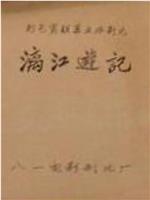 彩色寬銀幕立体影片
漓江遊記
八一电影制片厂